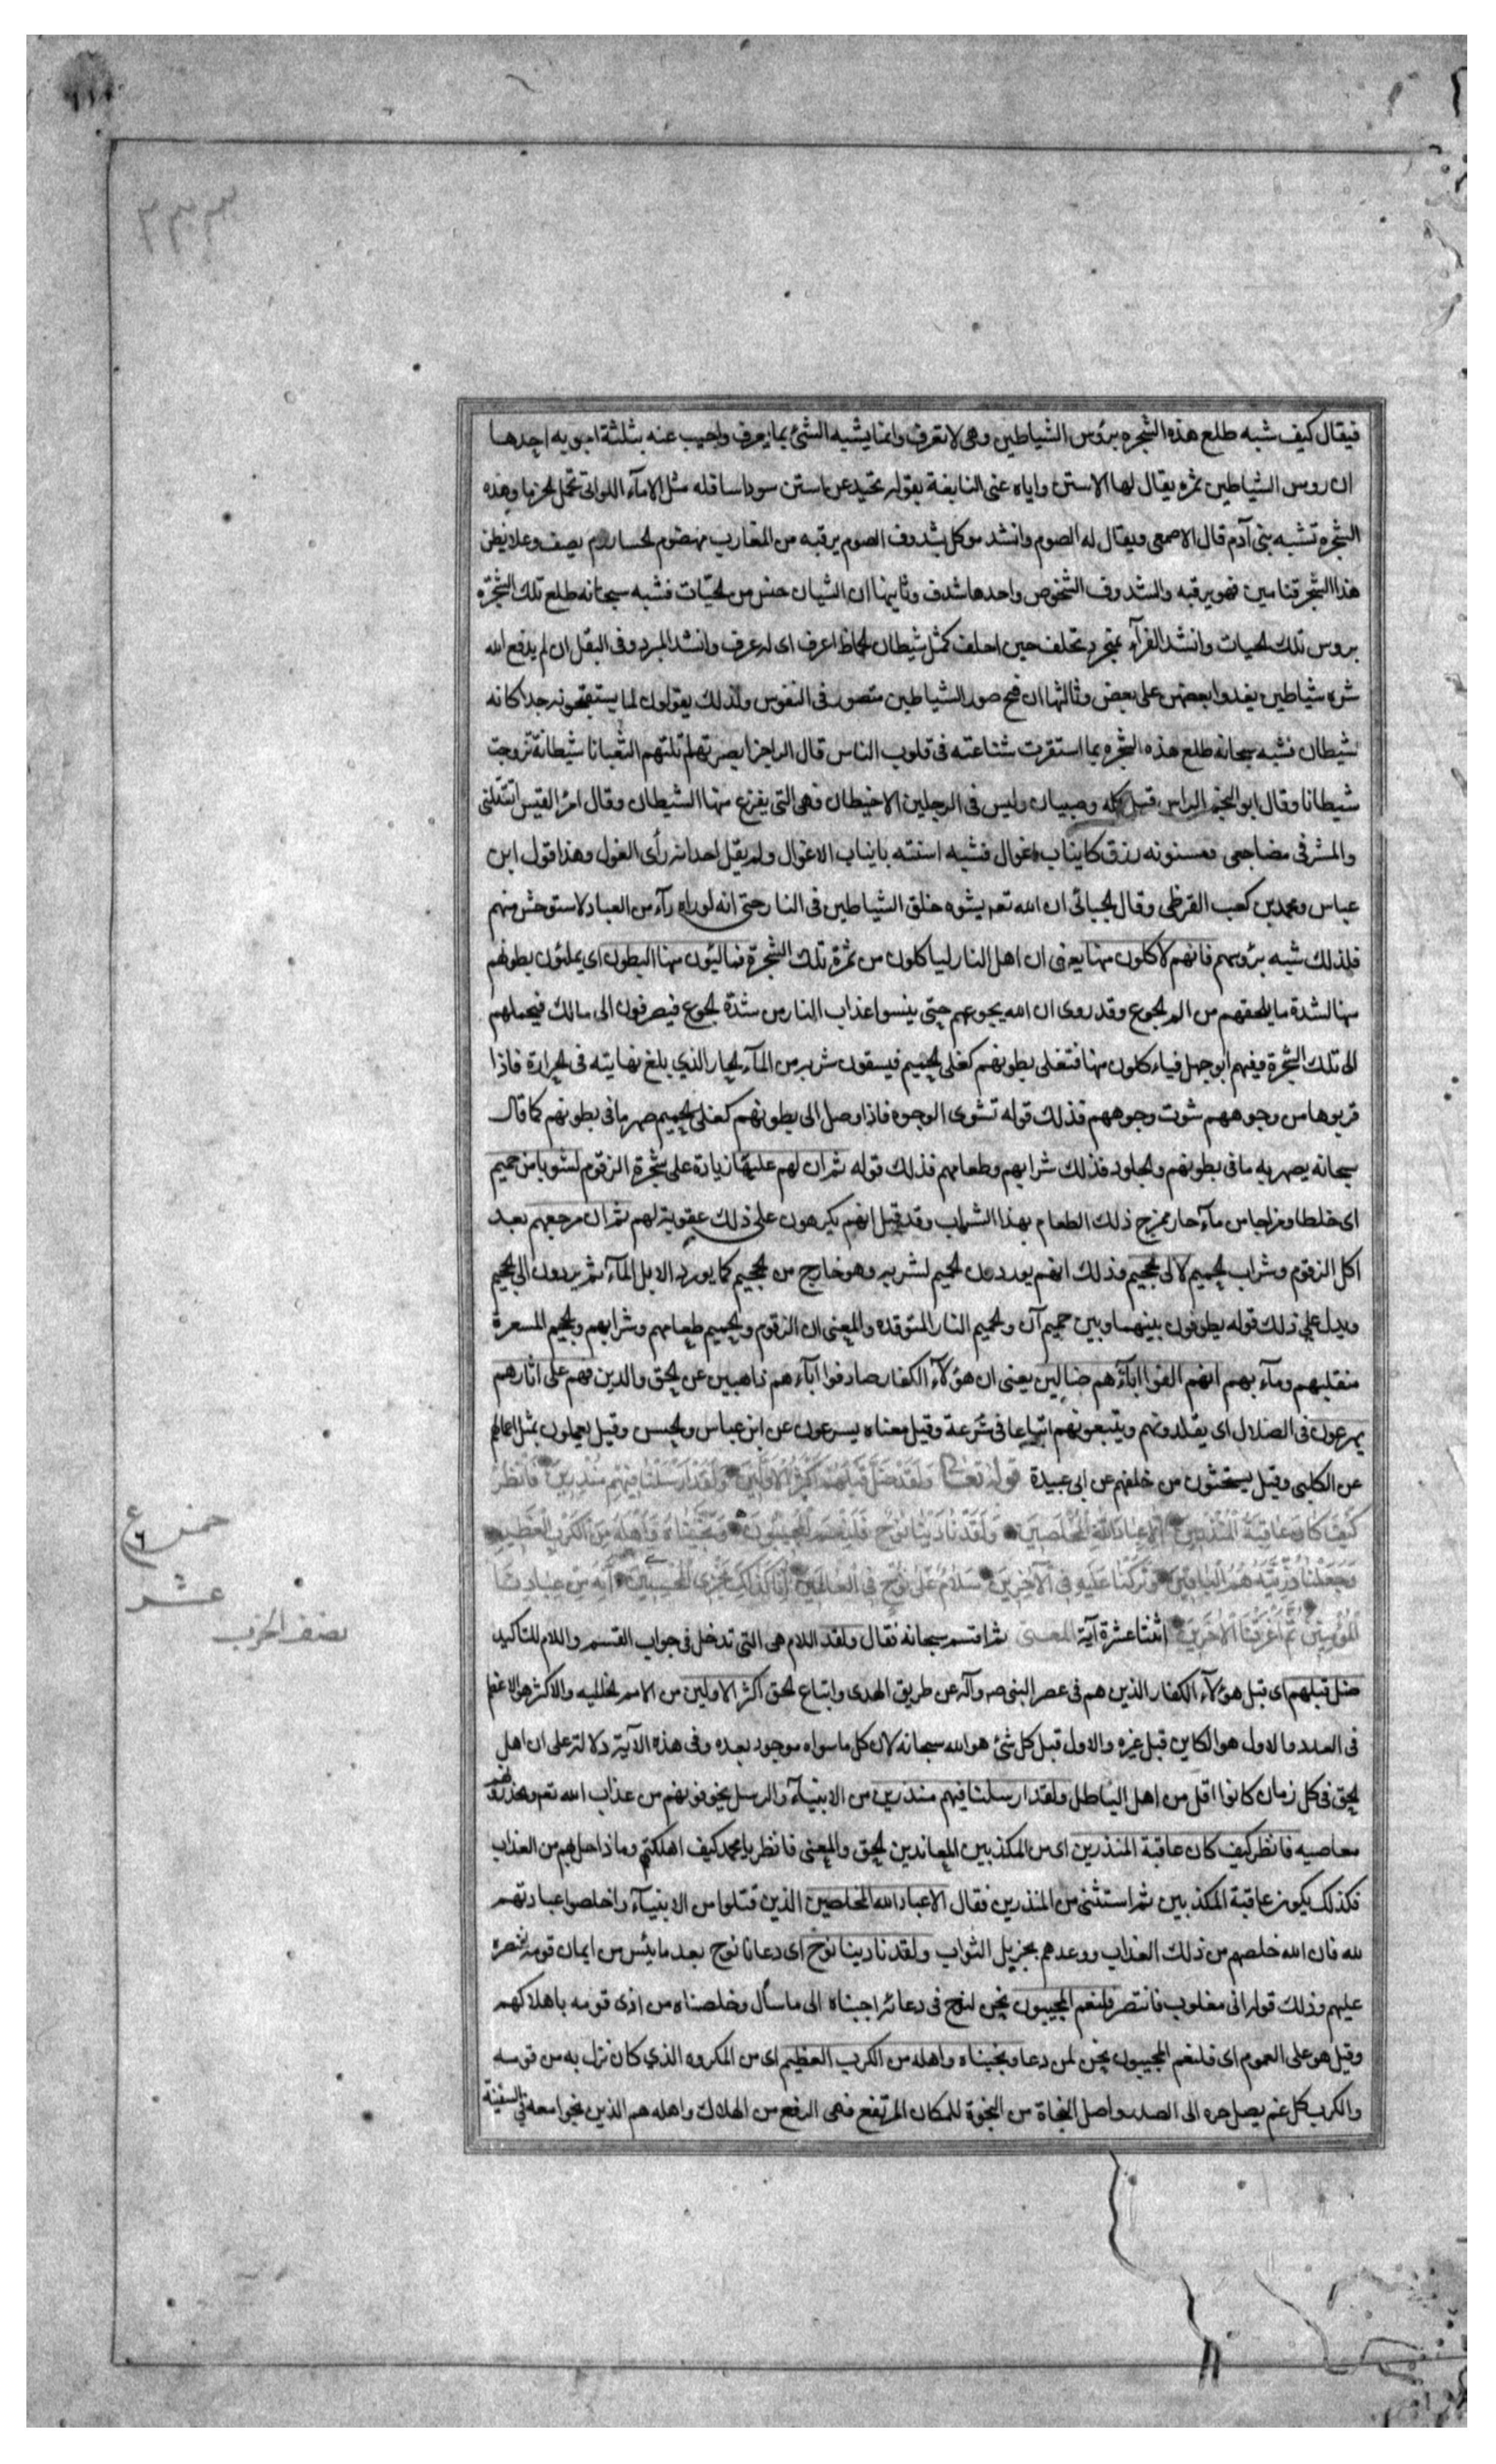 ٣٣٣
فيقال كيف شبه طلع هذه الشجره برؤس الشياطين وهى لا تعرف وانما يشبه الشئ بما يعرف واجيب عنه بثلثة اجوبه احدها
ان روس الشياطين ثمره يقال لها الاستن واياه عنى النابغة بقوله تحيد عن استن سود اسافله مثل الامآء اللواتى تحمل الحزما وهذه
الشجره تشبه بنى آدم قال الاصمعى ويقال له الصوم وانشد موكل بشدوف الصوم يرقبه من المغارب مهضوم الحسا زرم يصف وعلا يظن
هذا الشجر قناصين فهو يرقبه والشدوف الشخوص واحدها شدف وثانيها ان الشيطان جنس من الحيّات فشبه سبحانه طلع تلك الشجرة
بروس تلك الحيات وانشد الفرآء عنجرد تحلف حين احلف كمثل شيطان الحماط اعرف اى له عرف وانشد المبرد وفى البقل ان لم يدفع الله
شره شياطين يعدوا بعضهن على بعض وثالثها ان قبح صور الشياطين متصور فى النفوس ولذلك يقولون لما يستقبحونه جدا كانه
شيطان فشبه سبحانه طلع هذه الشجره بما استقرت شناعته فى قلوب الناس قال الراجز ابصرتها تلتهم الثعبانا شيطانة تزوجت
شيطانا وقال ابو النجم الراس قمل كله وصيبان وليس فى الرجلين الا خيطان فهى التى يفزع منها الشيطان وقال امرؤ القيس ايقتلنى
والمشرفى مضاجعى ومسنونه زرق كانياب اغوال فشبه اسنته بانياب الاغوال ولم يقل احد انه رأى الغول وهذا قول ابن
عباس ومحمد بن كعب القرظى وقال الجبائى ان الله تعم يشوه خلق الشياطين فى النار حتى انه لو راه رآء من العباد لاستوحش منهم
فلذلك شبه برؤسهم فانهم لاكلون منها يعنى ان اهل النار لياكلون من ثمرة تلك الشجرة فمالئون منها البطون اى يملئون بطونهم
منها لشدة ما يلحقهم من الم الجوع وقد روى ان الله يجوعهم حتى ينسوا عذاب النار من شدة الجوع فيصرفون الى مالك فيحملهم
الى تلك الشجرة وفيهم ابو جهل فياءكلون منها فتغلى بطونهم كغلى الحميم فيسقون شربه من المآء الحار الذي بلغ نهايته فى الحرارة فاذا
قربوها من وجوههم شوت وجوههم فذلك قوله تشوى الوجوه فاذا وصل الى بطونهم كغلى الحميم صهر ما فى بطونهم كما قال
سبحانه يصهر به ما فى بطونهم والجلود فذلك شرابهم وطعامهم فذلك قوله ثم ان لهم عليها زيادة على شجرة الزقوم لشوبا من حميم
اى خلطا ومزاجا من مآء حار يمزج ذلك الطعام بهذا الشراب وقد قيل انهم يكرهون على ذلك عقوبة لهم ثم ان مرجعهم بعد
اكل الزقوم وشراب الحميم لالى الجحيم وذلك انهم يوردون الحميم لشربه وهو خارج من الجحيم كما يورد الابل المآء ثم يردون الى الجحيم
ويدل على ذلك قوله يطوفون بينها وبين حميم آن والجحيم النار المتوقده والمعنى ان الزقوم والحميم طعامهم وشرابهم والجحيم المسعرة
منقلبهم ومآء بهم انهم الفوا ابآؤهم ضالين يعنى ان هؤلآء الكفار صادفوا ابآءهم ذاهبين عن الحق والدين فهم على اثارهم
يهرعون فى الضلال اى يقلدونهم ويتبعونهم اتباعا فى سُرعة وقيل معناه يسرعون عن ابن عباس والحسن وقيل يعملون بمثل اعمالهم
عن الكلبى وقيل يستحثون من خلفهم عن ابى عبيدة قوله تعالى وَلَقَدْ ضَلَّ قَبْلَهُمْ اَكْثَرُ الْاَوَّلِينَ وَلَقَدْ اَرْسَلْنَا فِيهِمْ مُنْذِرِينَ فَانْظُرْ
كَيْفَ كَانَ عَاقِبَةُ الْمُنْذَرِينَ اِلَّا عِبَادَ اللهِ الْمُخْلَصِينَ وَلَقَدْ نَادٰينَا نُوحٌ فَلَنِعْمَ الْمُجِيبُونَ وَنَجَّيْنَاهُ وَاَهْلَهُ مِنَ الْكَرْبِ الْعَظِيمِ
وَجَعَلْنَا ذُرِّيَّتَهُ هُمُ الْبَاقِينَ وَتَرَكْنَا عَلَيْهِ فِى الْآخِرِينَ سَلَامٌ عَلَى نُوحٍ فِى الْعَالَمِينَ اِنَّا كَذَلِكَ نَجْزِى الْمُحْسِنِينَ اِنَّهُ مِنْ عِبَادِنَا
الْمُؤْمِنِينَ ثُمَّ اَغْرَقْنَا الْآخَرِينَ اثنتا عشرة آية المعنى ثم اقسم سبحانه فقال ولقد اللام هى التى تدخل فى جواب القسم واللام للتاكيد
ضل قبلهم اى قبل هؤلآء الكفار الذين هم فى عصر النبى صه وآله عن طريق الهدى واتباع الحق اكثر الاولين من الامم الخاليه والاكثر هو الاعظم
فى العدد والاول هو الكاين قبل غيره والاول قبل كل شئ هو الله سبحانه لان كل ما سواه موجود بعده وفى هذه الآية دلالة على ان اهل
الحق فى كل زمان كانوا اقل من اهل الباطل ولقد ارسلنا فيهم منذرين من الانبيآء والرسل يخوفونهم من عذاب الله تعم ويحذرونهم
معاصيه فانظر كيف كان عاقبة المنذرين اى من المكذبين المعاندين للحق والمعنى فانظر يا محمد كيف اهلكتهم وماذا حل بهم من العذاب
فكذلك يكون عاقبة المكذبين ثم استثنى من المنذرين فقال الا عباد الله المخلصين الذين قبلوا من الانبيآء واخلصوا عبادتهم
لله فان الله خلصهم من ذلك العذاب ووعدهم بجزيل الثواب ولقد نادينا نوح اى دعانا نوح بعد ما يئس من ايمان قومه لننصره
عليهم وذلك قوله انى مغلوب فانتصر فلنعم المجيبون نحن لنوح فى دعائه اجبناه الى ما سأل وخلصناه من اذى قومه باهلاكهم
وقيل هو على العموم اى فلنعم المجيبون نحن لمن دعا ونجيناه واهله من الكرب العظيم اى من المكروه الذي كان نزل به من قومه
والكرب كل غم يصل حره الى الصدر واصل النجاة من النجوة للمكان المرتفع فهى الرفع من الهلاك واهله هم الذين نجوا معه فى السفينة
خمس ع
٦
عشر
نصف الحزب